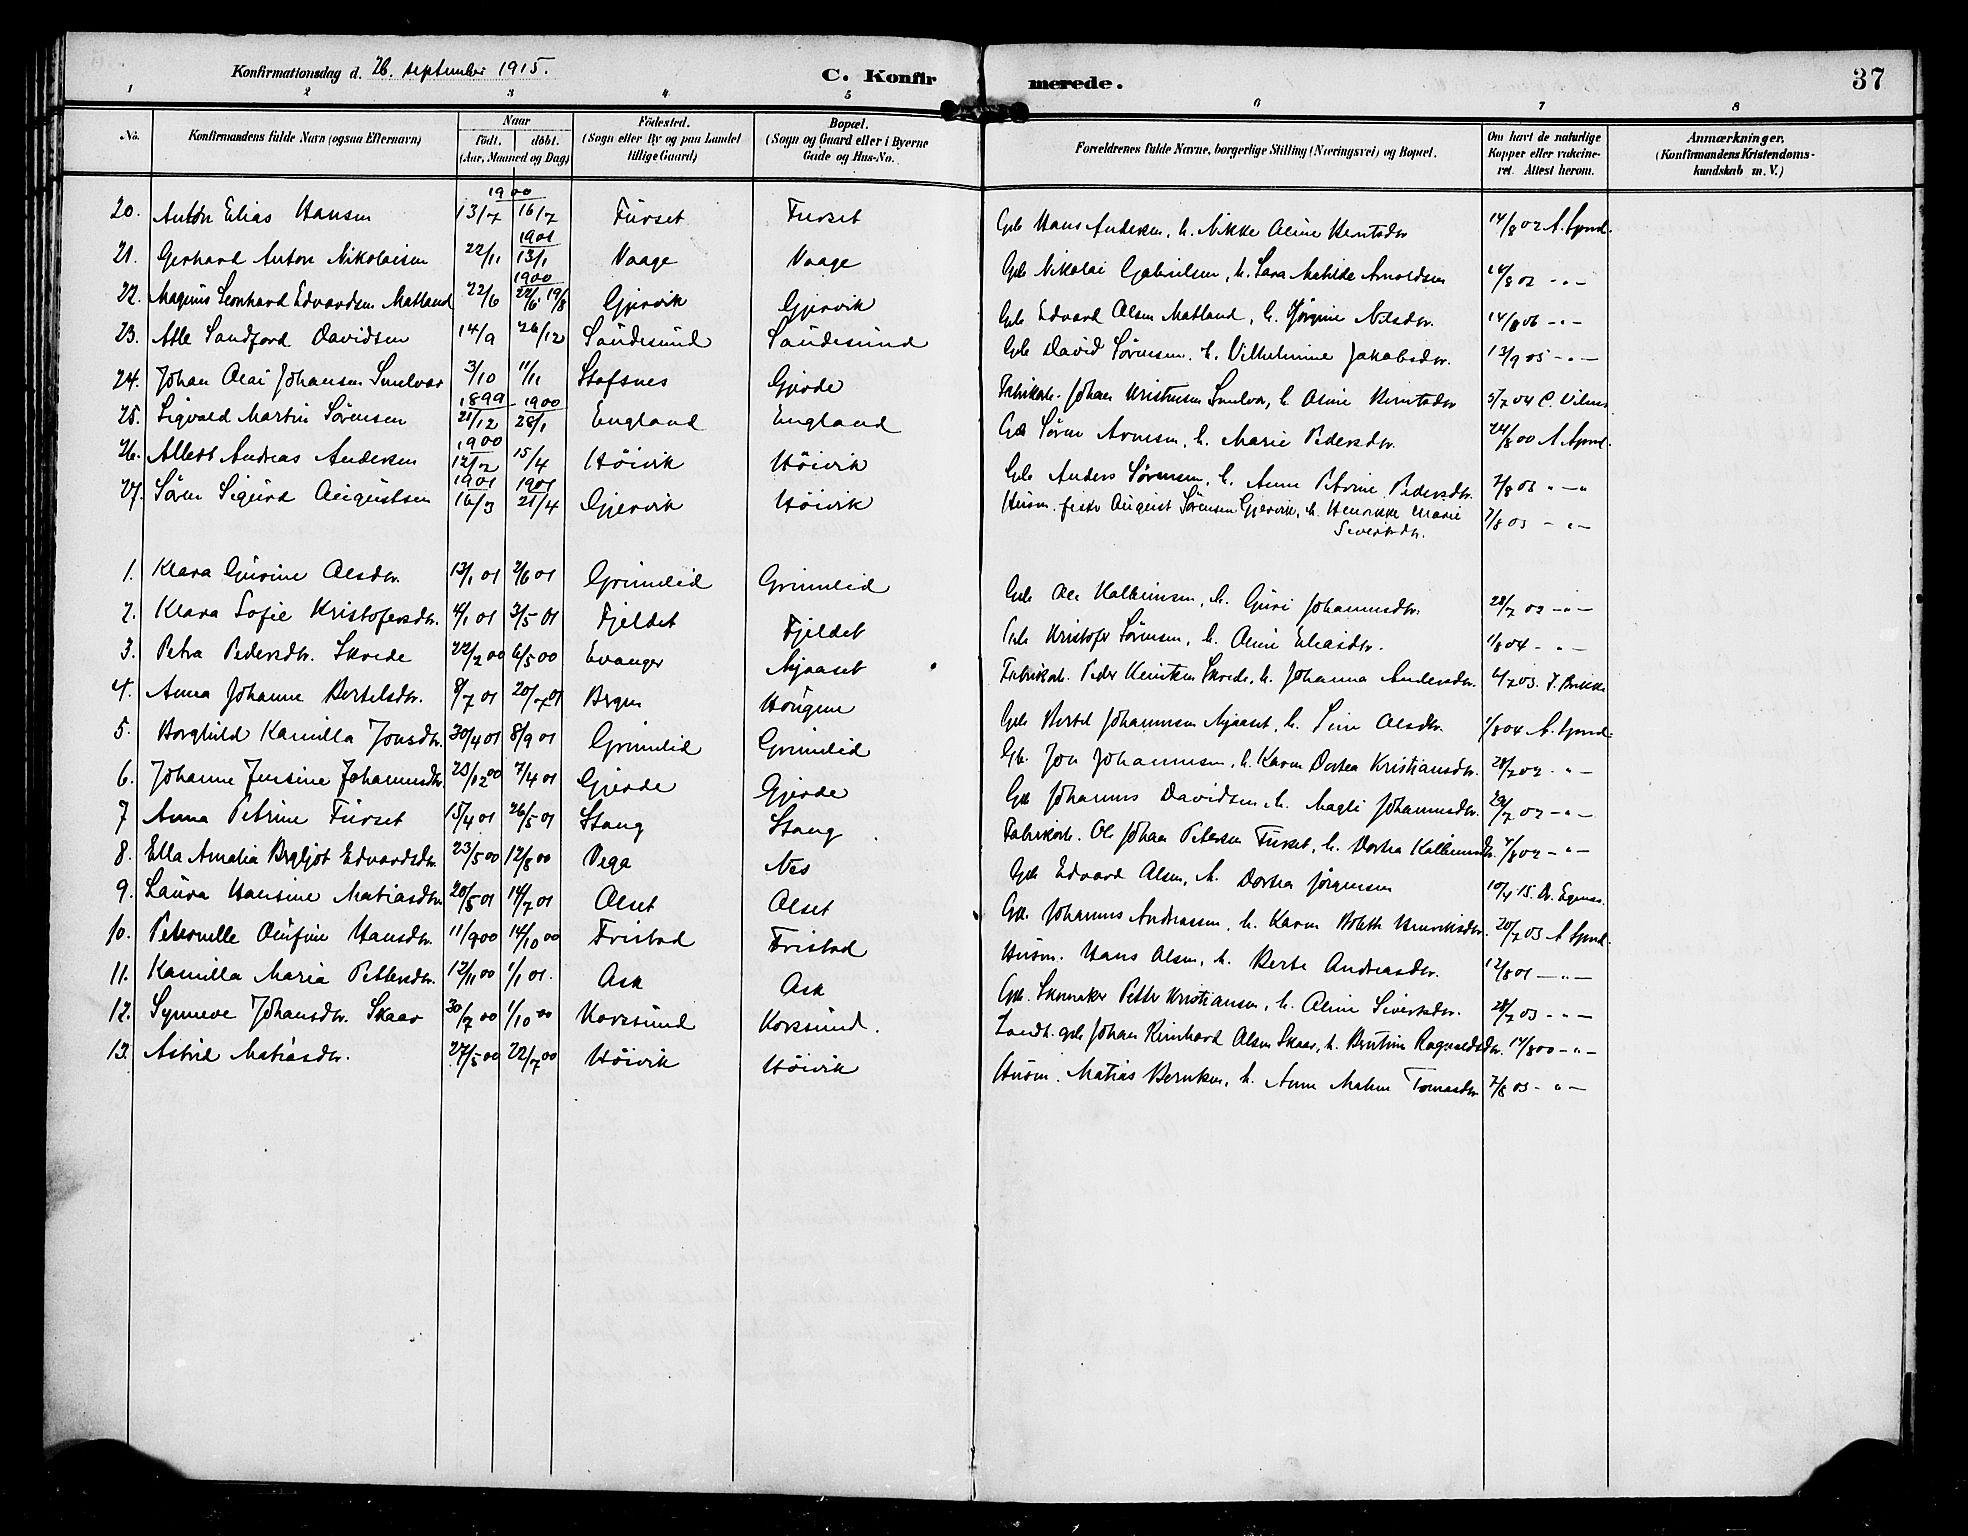 Konfirmationsdag d. 26. september 1915.
C. Konfirmerede.
37
1 2 3 4 5 6 7 8
No. Konfirmandens fulde Navn (ogsaa Efternavn) Naar födt. döbt. (Aar, Maaned og Dag) Födested. (Sogn eller By og paa Landet tillige Gaard) Bopæl. (Sogn og Gaard eller i Byerne Gade og Hus-No. Forældrenes fulde Navne, borgerlige Stilling (Næringsvei) og Bopæl. Om havt de naturlige Kopper eller vakcineret. Attest herom. Anmærkninger, (Konfirmandens Kristendomskundskab m. V.)
1900
20. Anton Elias Hansen 13/7 16/7 Furset Furset Gbr Hans Andersen, h. Nikke Oline Berntsdtr 14/8 02 A.
1901
21. Gerhard Anton Nikolaisen 22/11 13/1 Vaage Vaage Gbr Nikolai Gabrielsen, h. Sara Matilde Arnoldsen 14/8 02 - " -
1900
22. Magnus Leonhard Edvardsen Matland 22/6 22/6 19/8 Gjervik Gjervik Gbr Edvard Olsen Matland, h. Jørgine Nilsdtr. 14/8 06 - " -
23. Atle Sandford Davidsen 14/9 26/12 Saudesund Saudesund Gbr David Sørensen, h. Vilhelmine Jakobsdtr. 13/9 05 - " -
24. Johan Olai Johansen Smelvær 3/10 11/11 Stafsnes Gjerde Fabrikarb. Johan Kristensen Smelvær, h. Oline Berntsdtr 5/7 04 C.
1899 1900
25. Sigvald Martin Sørensen 21/12 28/1 England England Gbr Søren Arnesen, h. Marie Pedersdtr. 24/8 00 A.
1900
26. Albert Andreas Andersen 12/2 15/4 Höivik Höivik Gbr Anders Sørensen, h. Anne Petrine Pedersdtr. 7/8 03 " - "
1901 1901
27. Søren Sigurd Augustsen 16/3 21/4 Gjervik Höivik Husm. fisker August Sørensen Gjervik, h. Henrikke Marie 7/8 03 - " -
Sivertsdtr.
1. Klara Gurine Olsdtr. 13/1 01 2/6 01 Grimelid Grimelid Gbr Ole Kolbeinsen, h. Guri Johannesdtr. 28/7 02 - " -
2. Klara Sofie Kristofersdtr. 4/1 01 3/5 01 Fjeldet Fjeldet Gbr Kristofer Sørensen, h. Oline Eliasdtr. 1/8 04 - " -
3. Petra Pedersdtr. Skrede 22/2 00 6/5 00 Evanger Mjaaset Fabrikarb. Peder Skrede, h. Johanna Andersdtr. 4/7 03.
4. Anna Johanne Bertelsdtr. 8/7 01 20/7 01 Bergen Hougene Gbr Bertel Johannesen Mjaaset, h. Sine Olsdtr. 1/8 04 A.
5. Borghild Kamilla Jonsdtr. 30/4 01 8/9 01 Grimelid Grimelid Gb. Jon Johannesen, h. Karen Dortea Kristiansdtr. 28/7 02 - " -
6. Johanne Jensine Johannesdtr 23/12 00 7/4 01 Gjerde Gjerde Gbr Johannes Davidsen, h. Magli Johannesdtr. 29/7 02 - " -
7 Anna Petrine Furset 15/4 01 26/5 01 Stang Stang Fabrikarb. Ole Johan Petersen Furset, h. Dortea Kolbeinsdtr. 4/8 02 - " -
8. Ella Amalia Bergljot Edvardsdtr. 23/5 00 12/8 00 Vega Nes Gbr Edvard Olsen, h. Dortea Jørgensen 10/4 15. Dr.
9. Laura Hansine Matiasdtr. 20/5 01 14/7 01 Olset Olset Gbr. Johannes Andreassen, h. Karen Bolette Henriksdtr. 20/7 03 A
10. Peternelle Olufine Hansdtr. 11/9 00 14/10 00 Fristad Fristad Husm. Hans Olsen, h. Berte Andreasdtr. 12/8 01 - " -
11. Kamilla Maria Pettersdtr. 12/11 00 1/1 01. Ask Ask Gbr. Skomaker Petter Kristiansen, h. Oline Sivertsdtr. 28/7 03 - " -
12. Synneve Johansdtr. Skaar 30/7 00 1/10 00 Korssund Korssund. Landh. gbr Johan Reinhard Olsen Skaar, h. Bentine Ragnvaldsdtr. 14/8 00 - " -
13. Astrid Matiasdtr. 27/5 00 22/7 00 Höivik Höivik Husm. Matias Berntsen, h. Anne Malene Tomasdtr 7/8 03 - " -